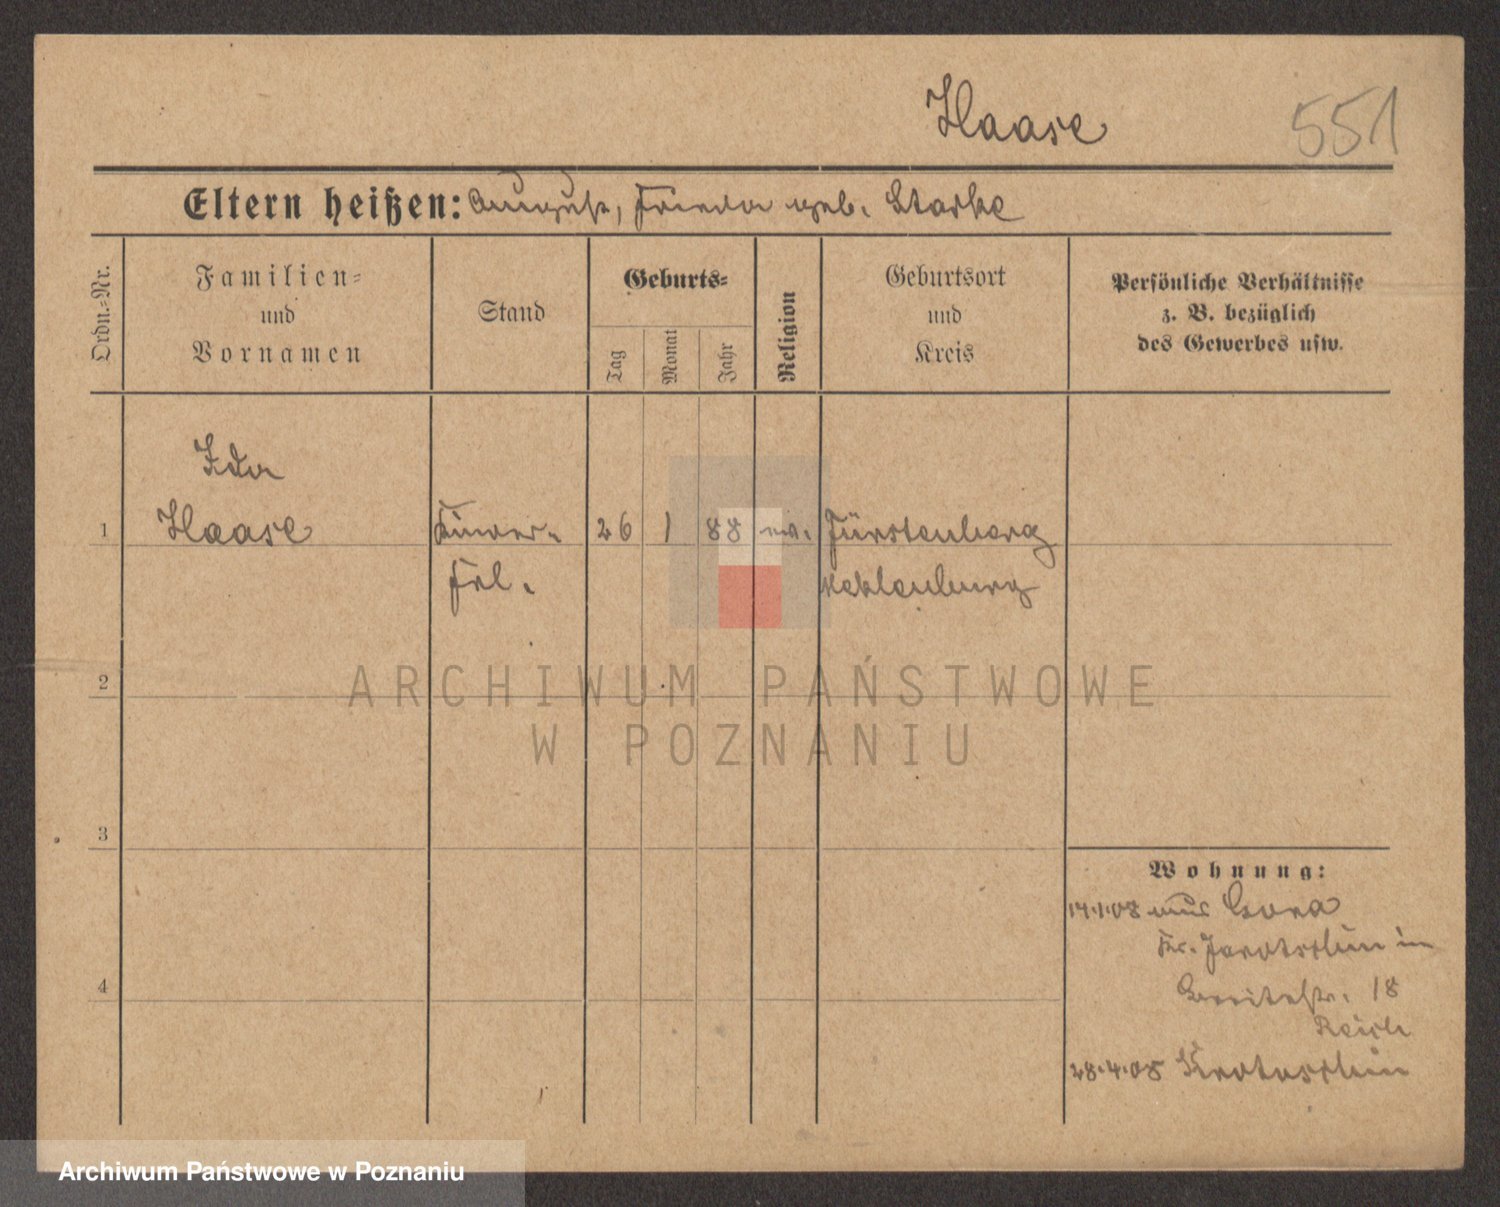 Haase 551
Eltern heißen: August, Frieda geb. Starke
Ordn.=Nr.
Familien=
und
Vornamen
Stand
Geburts=
Tag
Monat
Jahr
Religion
Geburtsort
und
Kreis
Persönliche Verhältnisse
z. B. bezüglich
des Gewerbes usw.
Ida
1 Haase Kinder- 26 1 88 ev. Fürstenberg
Frl. Meklenburg
2
ARCHIWUM PAŃSTWOWE
W POZNANIU
3
Wohnung:
14.1.08 aus Gora
Kr. Jarotschin in
4
Breitestr. 18
Reich
28.4.08 Krotoschin
Archiwum Państwowe w Poznaniu